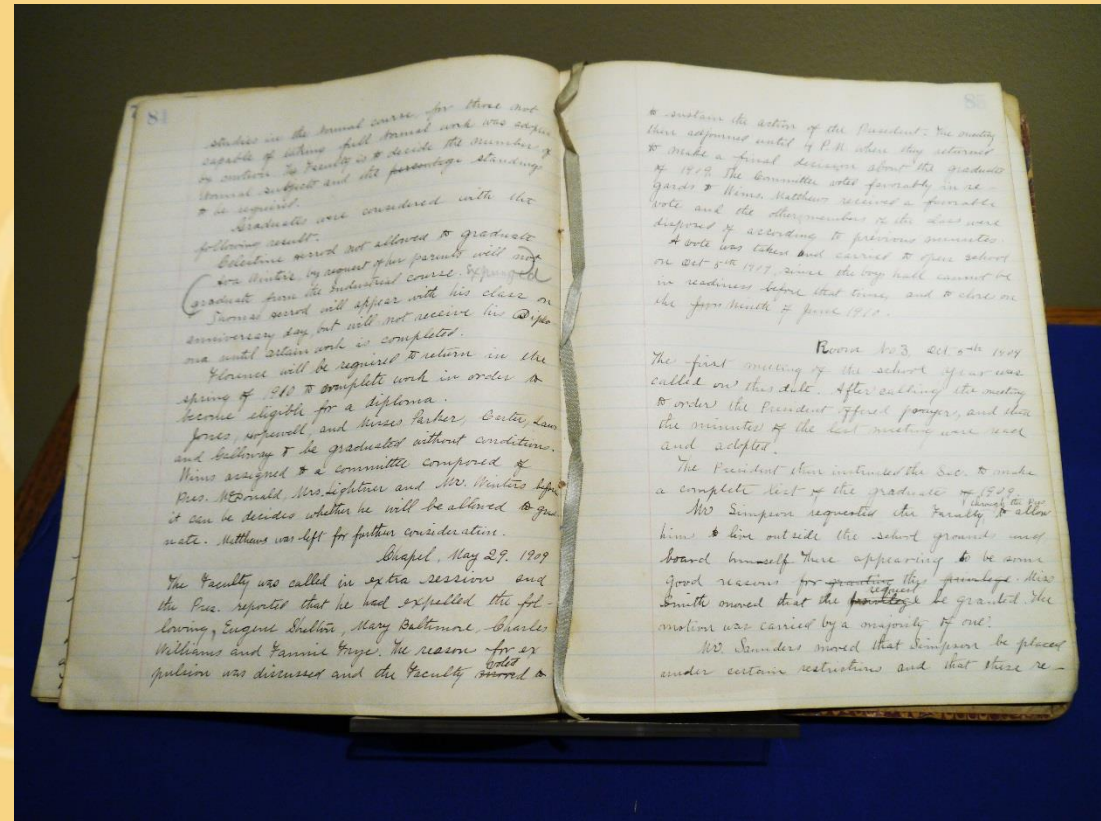 81
studies in the Normal course, for those not
capable of taking full Normal work was
on motion. The Faculty is to decide the number of
Normal subjects and the percentage standings
to be required.
Graduates were considered with the
following result.
Celestine not allowed to graduate
Ava by request of her parents will not
graduate from the Industrial course. Expunged
Thomas will appear with his class on
anniversary day, but will not receive his Diplo
ma until certain work is completed.
Florence will be required to return in the
spring of 1910 to complete work in order to
become eligible for a diploma.
Jones, Hopewell, and Misses Parker, Carter,
and Galloway to be graduated without conditions.
Wims assigned to a committee composed of
Pres. McDonald, Mrs. Lightner and Mr. Winters before
it can be decides whether he will be allowed to grad
uate. Matthews was left for further consideration.
Chapel, May 29. 1909
The Faculty was called in extra session and
the Pres. reported that he had expelled the fol-
lowing, Eugene Shelton, Mary Baltimore, Charles
Williams and Fannie Frye. The reason for ex
pulsion was discussed and the Faculty voted to
to sustain the action of the President. The meeting
then adjourned until 4 P.M. where they returned
to make a final decision about the graduates
of 1909. The Committee voted favorably in re-
gards to Wims. Matthews received a favorable
vote and the other members of the class were
disposed of according to previous minutes.
A vote was taken and carried to open school
on Oct 5th 1909, since the boys hall cannot be
in readiness before that time, and to close on
the ninth of June 1910.
Room No 3. Oct 5th 1909
The first meeting of the school year was
called on this date. After calling the meeting
to order the President offered prayer, and then
the minutes of the last meeting were read
and adopted.
The President then instructed the Sec. to make
a complete list of the graduate of 1909.
Mr Simpson requested the Faculty, through the Pres to allow
him to live outside the school grounds and
board himself. There appearing to be some
good reasons for granting this privilege. Miss
Smith moved that the privilege request be granted. The
motion was carried by a majority of one.
Mr. Saunders moved that Simpson be placed
under certain restriction and that these re-